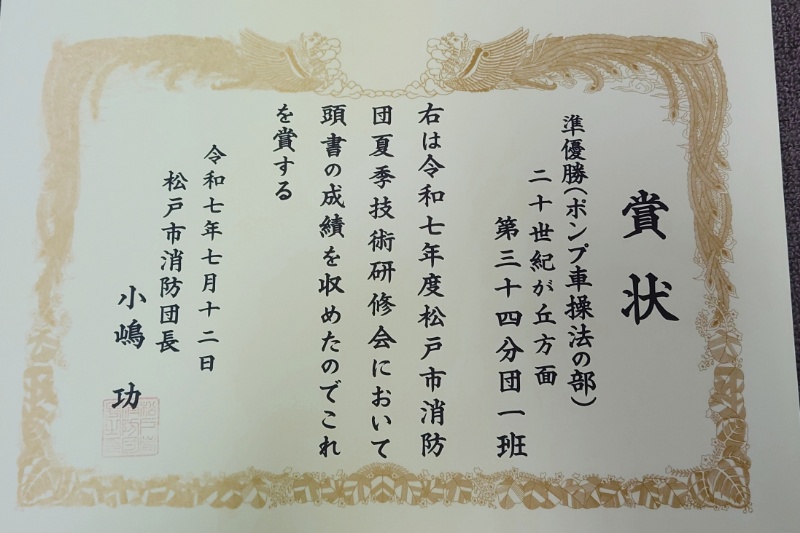 賞状
準優勝(ポンプ車操法の部)
二十世紀が丘方面
第三十四分団一班
右は令和七年度松戸市消防
団夏季技術研修会において
頭書の成績を収めたのでこれ
を賞する
令和七年七月十二日
松戸市消防団長
小嶋功